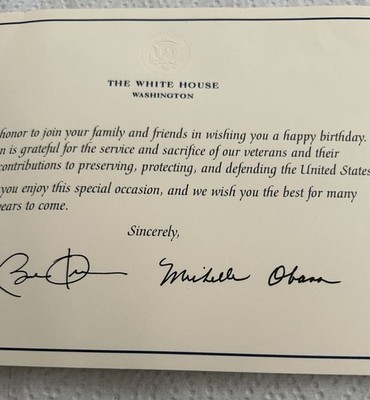 THE WHITE HOUSE
WASHINGTON
honor to join your family and friends in wishing you a happy birthday.
n is grateful for the service and sacrifice of our veterans and their
contributions to preserving, protecting, and defending the United States
you enjoy this special occasion, and we wish you the best for many
ears to come.
Sincerely,
Michelle Obama